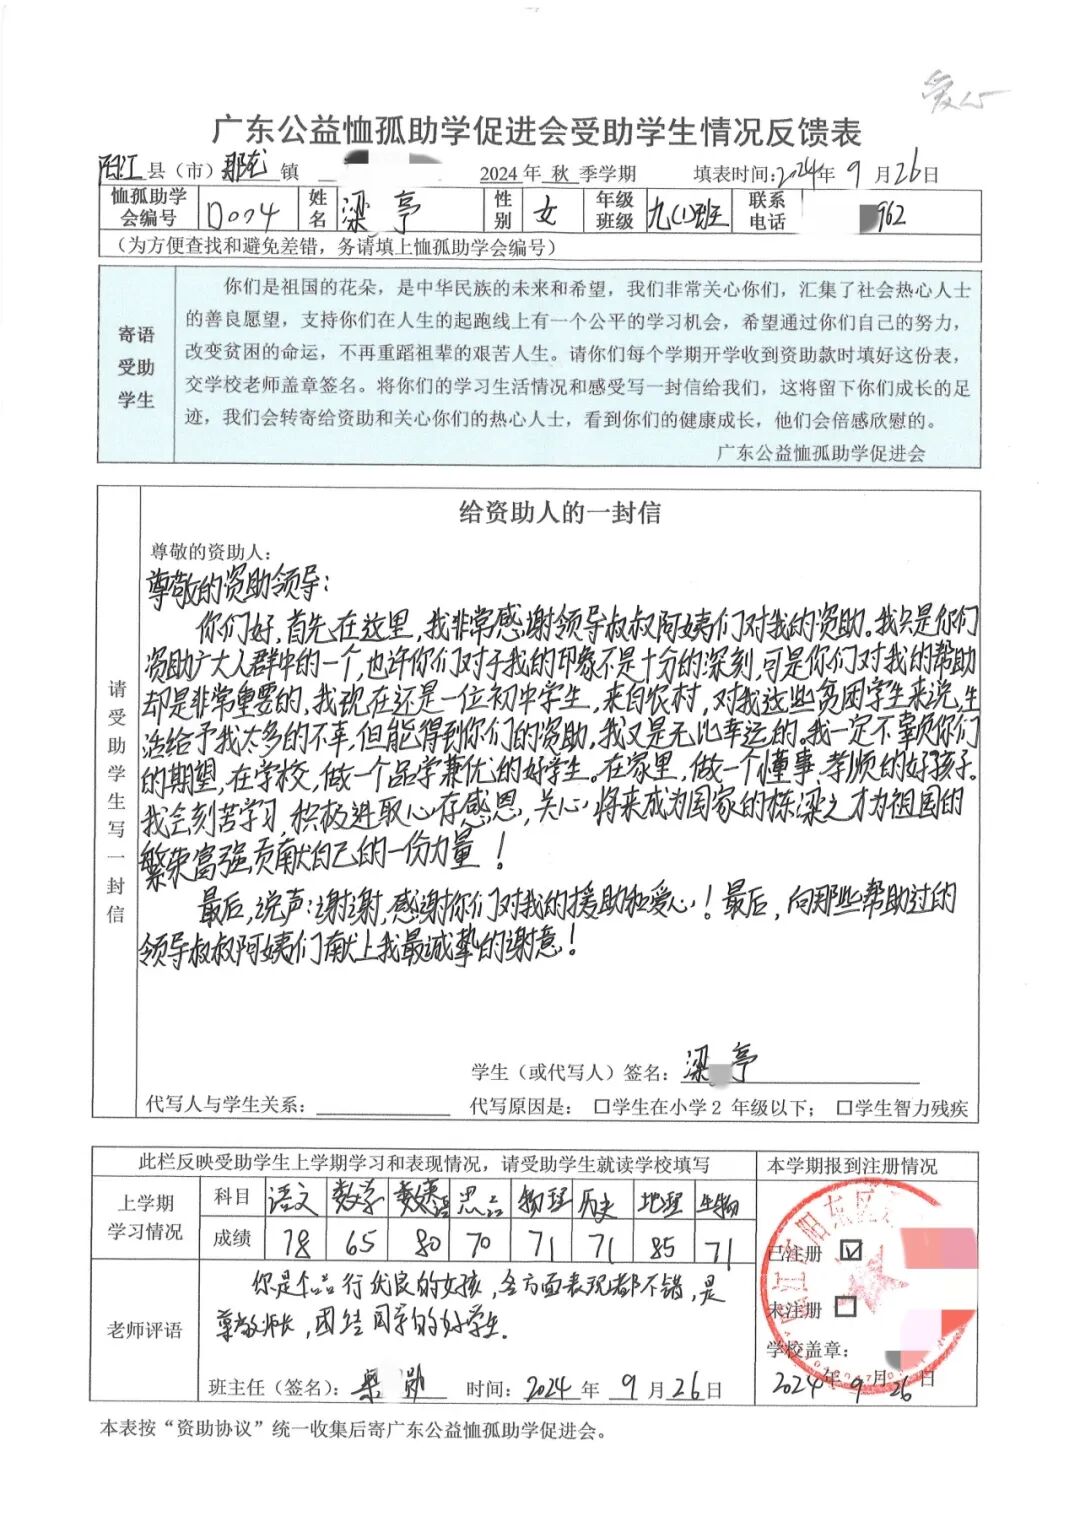 爱心
广东公益恤孤助学促进会受助学生情况反馈表
阳江县（市）那龙镇 2024年 秋 季学期 填表时间：2024年 9 月 26日
恤孤助学会编号 D074 姓名 梁 亭 性别 女 年级班级 九(1)班 联系电话 962
（为方便查找和避免差错，务请填上恤孤助学会编号）
寄语受助学生
你们是祖国的花朵，是中华民族的未来和希望，我们非常关心你们，汇集了社会热心人士
的善良愿望，支持你们在人生的起跑线上有一个公平的学习机会，希望通过你们自己的努力，
改变贫困的命运，不再重蹈祖辈的艰苦人生。请你们每个学期开学收到资助款时填好这份表，
交学校老师盖章签名。将你们的学习生活情况和感受写一封信给我们，这将留下你们成长的足
迹，我们会转寄给资助和关心你们的热心人士，看到你们的健康成长，他们会倍感欣慰的。
广东公益恤孤助学促进会
请受助学生写一封信
给资助人的一封信
尊敬的资助人：
尊敬的资助领导：
你们好，首先，在这里，我非常感谢领导叔叔阿姨们对我的资助。我只是你们
资助广大人群中的一个，也许你们对于我的印象不是十分的深刻，可是你们对我的帮助
却是非常重要的，我现在还是一位初中学生，来自农村，对我这些贫困学生来说，生
活给予我太多的不幸，但能得到你们的资助，我又是无比幸运的。我一定不辜负你们
的期望，在学校，做一个品学兼优的好学生。在家里，做一个懂事、孝顺的好孩子。
我会刻苦学习，积极进取心存感恩，关心，将来成为国家的栋梁之才为祖国的
繁荣富强贡献自己的一份力量！
最后，说声：谢谢，感谢你们对我的援助和爱心！最后，向那些帮助过的
领导叔叔阿姨们献上我最诚挚的谢意！
学生（或代写人）签名：梁 亭
代写人与学生关系： 代写原因是： □学生在小学2 年级以下； □学生智力残疾
此栏反映受助学生上学期学习和表现情况，请受助学生就读学校填写 本学期报到注册情况
上学期学习情况
科目 语文 数学 英语 思品 物理 历史 地理 生物
成绩 78 65 80 70 71 71 85 71
已注册 ☑
未注册 □
学校盖章：
2024年 9月 26日
老师评语
你是个品行优良的女孩，各方面表现都不错，是
尊敬师长，团结同学的好学生.
班主任（签名）： 勋 时间：2024 年 9 月 26 日
本表按“资助协议”统一收集后寄广东公益恤孤助学促进会。